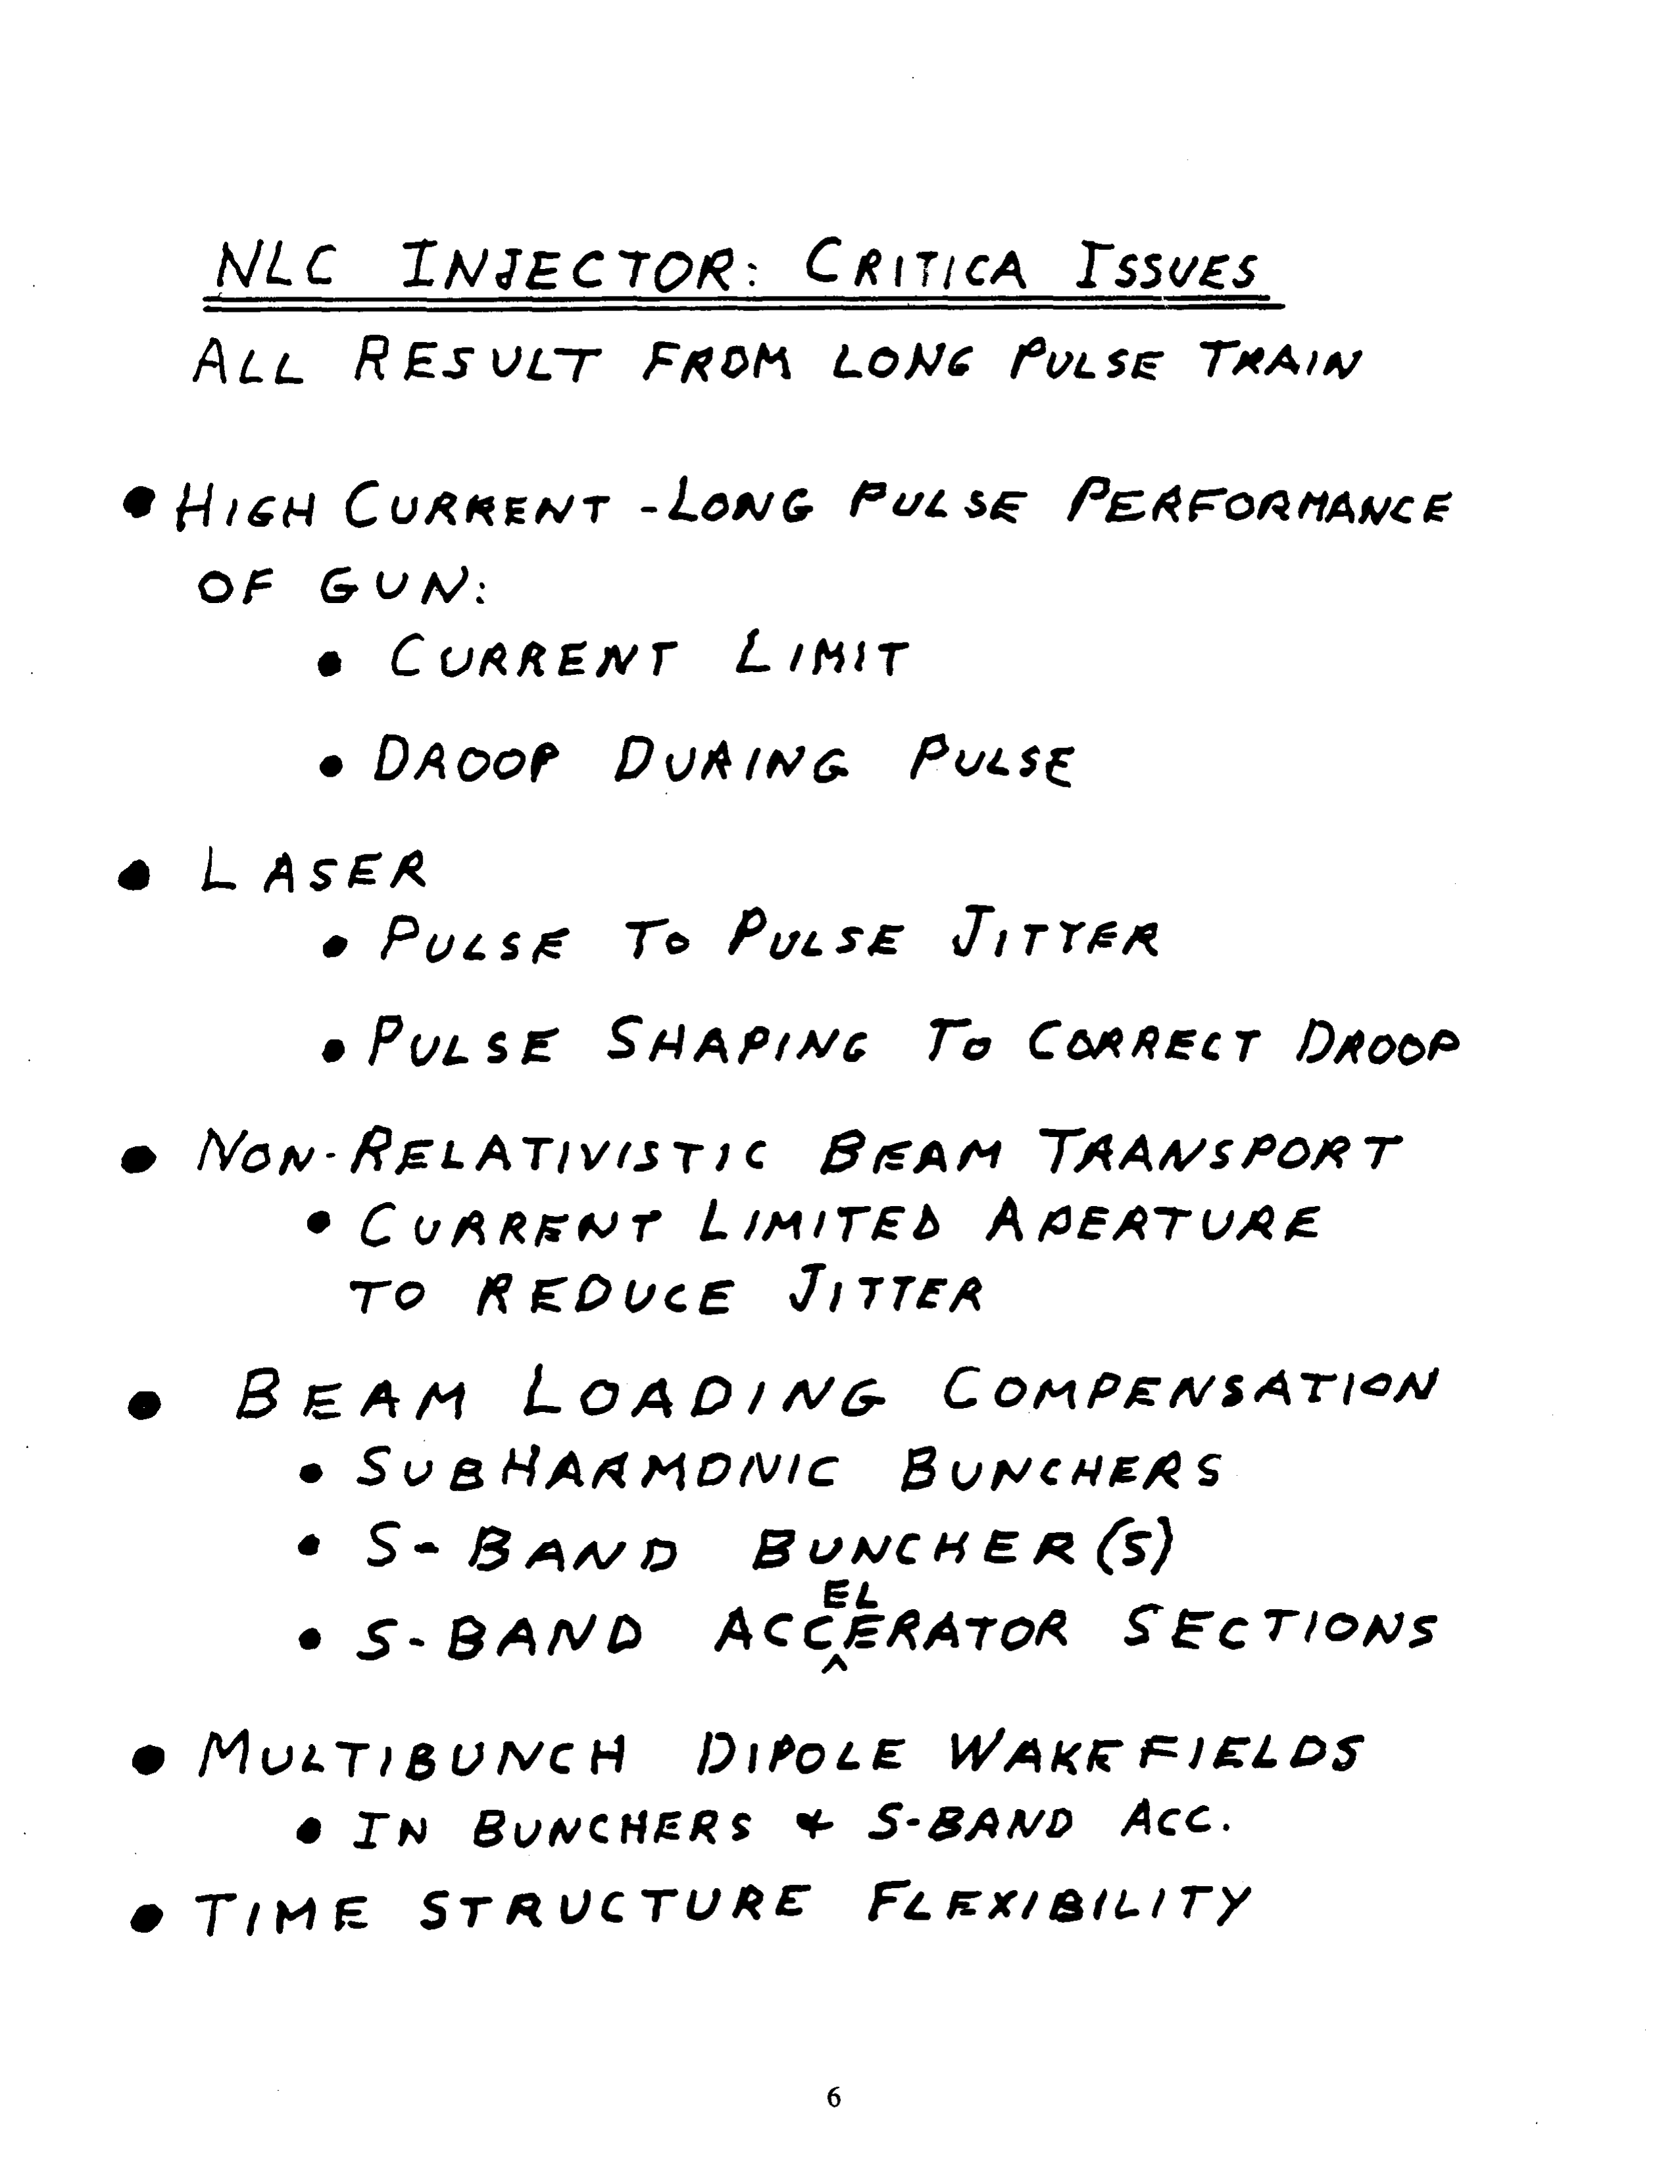 NLC INJECTOR: CRITICA ISSUES
ALL RESULT FROM LONG PULSE TRAIN
• HIGH CURRENT -LONG PULSE PERFORMANCE
OF GUN:
• CURRENT LIMIT
• DROOP DURING PULSE
• LASER
• PULSE TO PULSE JITTER
• PULSE SHAPING TO CORRECT DROOP
• NON-RELATIVISTIC BEAM TRANSPORT
• CURRENT LIMITED APERTURE
TO REDUCE JITTER
• BEAM LOADING COMPENSATION
• SUBHARMONIC BUNCHERS
• S-BAND BUNCHER(S)
EL
• S-BAND ACC^ERATOR SECTIONS
• MULTIBUNCH DIPOLE WAKEFIELDS
• IN BUNCHERS & S-BAND ACC.
• TIME STRUCTURE FLEXIBILITY
6